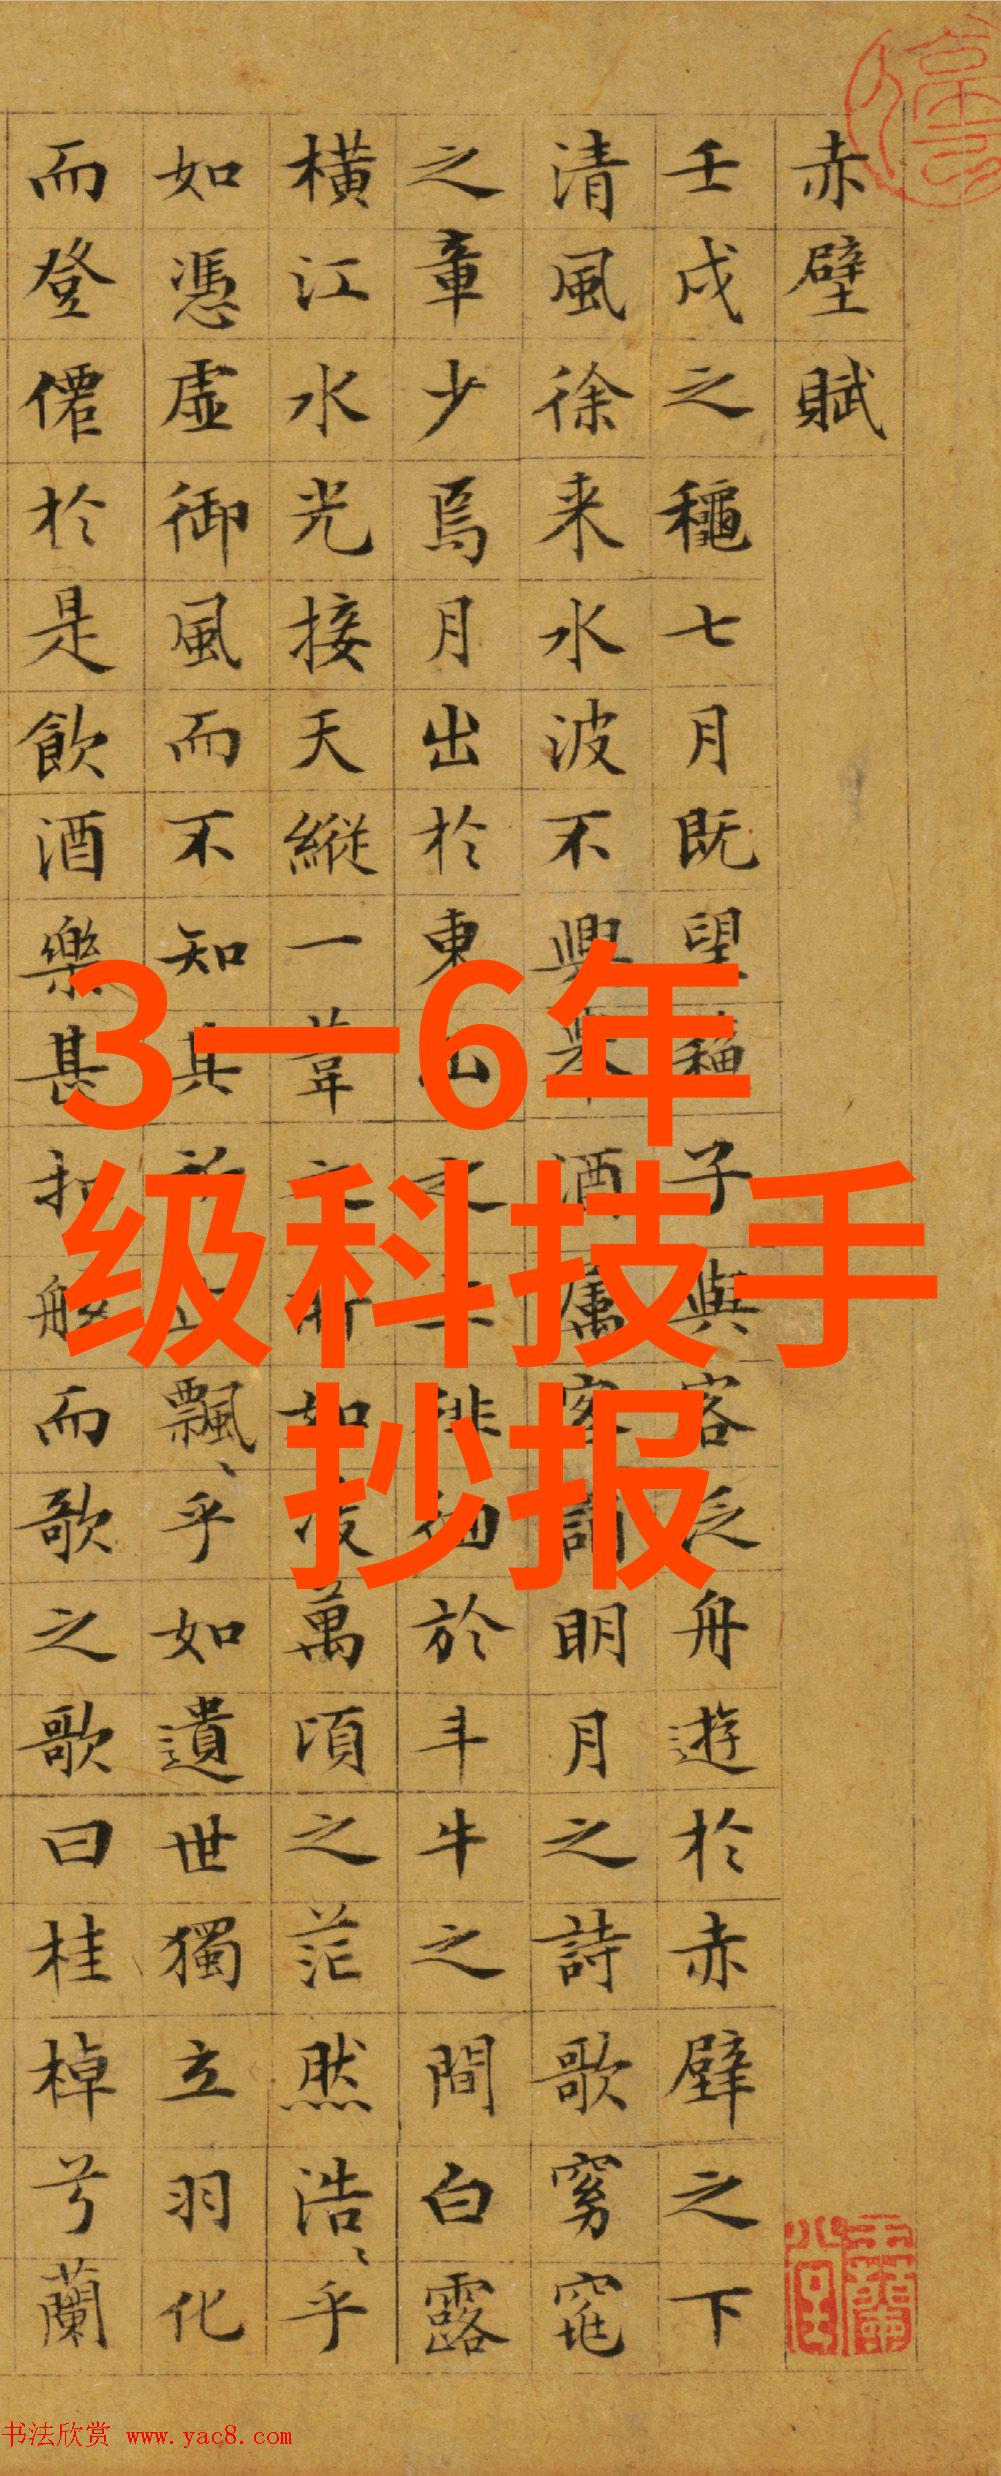 赤壁賦
壬戌之龝七月既望子與客泛舟遊於赤壁之下
清風徐来水波不興舉酒屬客誦明月之詩歌窈窕
之章少焉月出於東山之上徘徊於斗牛之間白露
橫江水光接天縱一葦之所如凌萬頃之茫然浩、乎
如憑虛御風而不知其所止飄、乎如遺世獨立羽化
而登僊於是飲酒樂甚扣舷而歌之歌曰桂棹兮蘭
3一6年
级科技手
抄报
书法欣赏 www.yac8.com